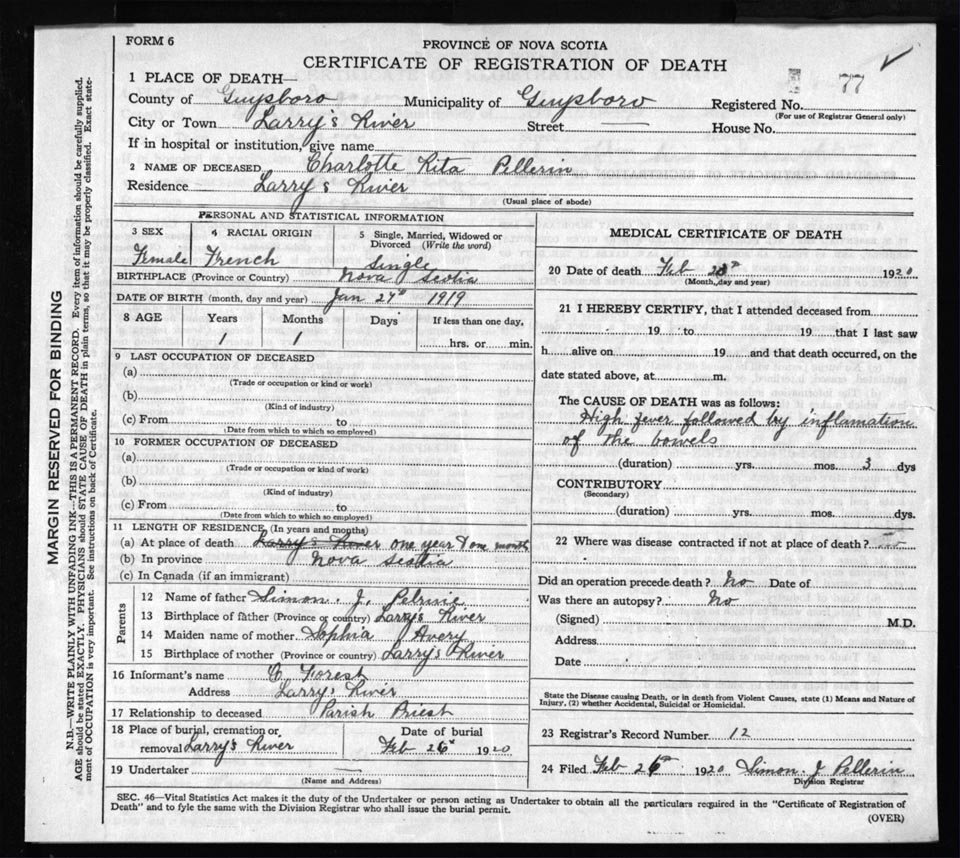 FORM 6
PROVINCE OF NOVA SCOTIA
CERTIFICATE OF REGISTRATION OF DEATH
77
1 PLACE OF DEATH—
County of Guysboro Municipality of Guysboro Registered No.
(For use of Registrar General only)
City or Town Larry's River Street House No.
If in hospital or institution, give name
2 NAME OF DECEASED Charlotte Rita Pellerin
Residence Larry's River
(Usual place of abode)
PERSONAL AND STATISTICAL INFORMATION
3 SEX 4 RACIAL ORIGIN 5 Single, Married, Widowed or Divorced (Write the word)
Female French Single
BIRTHPLACE (Province or Country) Nova Scotia
DATE OF BIRTH (month, day and year) Jan 27th 1919
8 AGE Years Months Days If less than one day,
1 1 hrs. or min.
9 LAST OCCUPATION OF DECEASED
(a)
(Trade or occupation or kind or work)
(b)
(Kind of industry)
(c) From to
(Date from which to which so employed)
10 FORMER OCCUPATION OF DECEASED
(a)
(Trade or occupation or kind of work)
(b)
(Kind of industry)
(c) From to
(Date from which to which so employed)
11 LENGTH OF RESIDENCE (In years and months)
(a) At place of death Larry's River one year & one month
(b) In province Nova Scotia
(c) In Canada (if an immigrant)
Parents
12 Name of father Simon. J. Pelrine
13 Birthplace of father (Province or country) Larry's River
14 Maiden name of mother Sophia Avery
15 Birthplace of mother (Province or country) Larry's River
16 Informant's name Forest
Address Larry's River
17 Relationship to deceased Parish Priest
18 Place of burial, cremation or removal Larry's River
Date of burial Feb 26th 1920
19 Undertaker
(Name and Address)
MEDICAL CERTIFICATE OF DEATH
20 Date of death Feb 1920
(Month, day and year)
21 I HEREBY CERTIFY, that I attended deceased from
19 to 19 that I last saw
h alive on 19 and that death occurred, on the
date stated above, at m.
The CAUSE OF DEATH was as follows:
High fever followed by inflamation
of the bowels
(duration) yrs. mos. 3 dys
CONTRIBUTORY
(Secondary)
(duration) yrs. mos. dys.
22 Where was disease contracted if not at place of death?
Did an operation precede death? No Date of
Was there an autopsy? No
(Signed) M.D.
Address
Date
State the Disease causing Death, or in death from Violent Causes, state (1) Means and Nature of
Injury, (2) whether Accidental, Suicidal or Homicidal.
23 Registrar's Record Number 12
24 Filed Feb 26th 1920 Simon. J Pellerin
Division Registrar
SEC. 46—Vital Statistics Act makes it the duty of the Undertaker or person acting as Undertaker to obtain all the particulars required in the "Certificate of Registration of
Death" and to fyle the same with the Division Registrar who shall issue the burial permit.
(OVER)
MARGIN RESERVED FOR BINDING
N.B.—WRITE PLAINLY WITH UNFADING INK—THIS IS A PERMANENT RECORD. Every item of information should be carefully supplied.
AGE should be stated EXACTLY. PHYSICIANS should STATE CAUSE OF DEATH in plain terms, so that it may be properly classified. Exact state-
ment of OCCUPATION is very important. See instructions on back of Certificate.